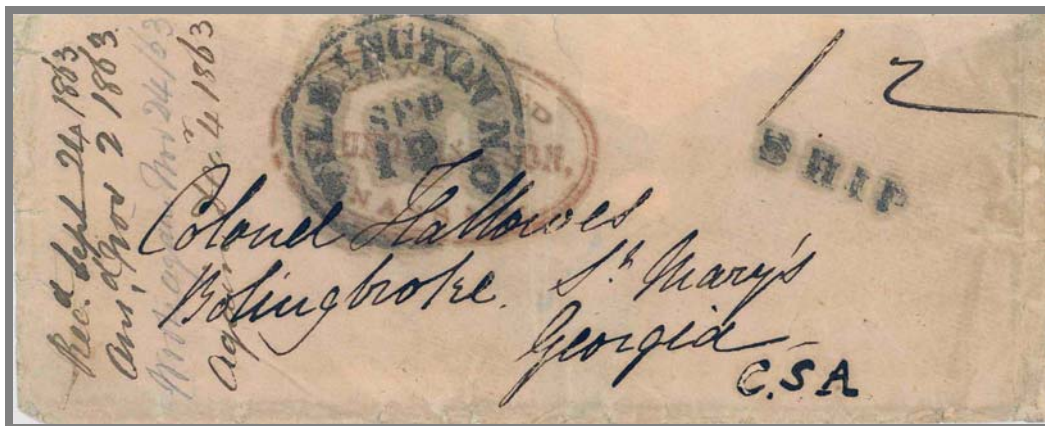 Rec.d Sept 24 1863
Ans.d Nov 2 1863
Wrote again Nov 24/63
Again Dec.r 4 1863
WILMINGTON N.C.
SEP
19
12
SHIP
Colonel Hallowes
Bolingbroke. St. Mary's
Georgia
C.S.A